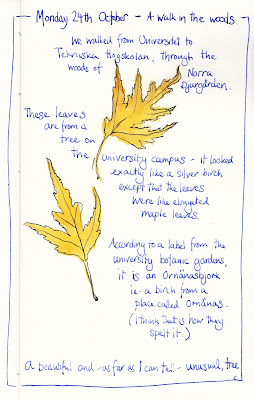 Monday 24th October - A walk in the woods
We walked from Universitet to
Tekniska Högskolan, through the
woods of Norra
Djurgården.
These leaves
are from a
tree on
the university campus - it looked
exactly like a silver birch
except that the leaves
were like elongated
maple leaves.
According to a label from the
university botanic gardens,
it is an Ornäsbjork
ie a birch from a
place called Ornäs.
(I think that is how they
spelt it.)
A beautiful and - as far as I can tell - unusual, tree